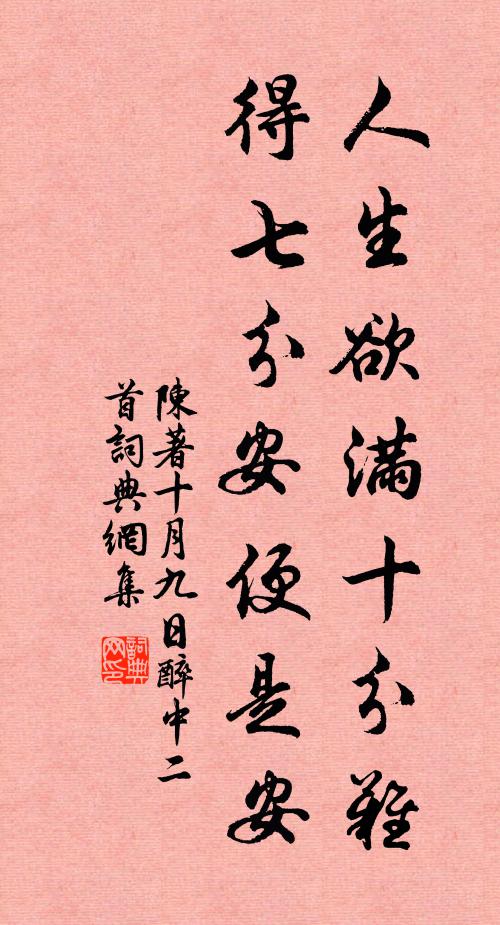 人生欲满十分難
得七分安便是安
陳著十月九日醉中二
首詞典網集
詞典
网印